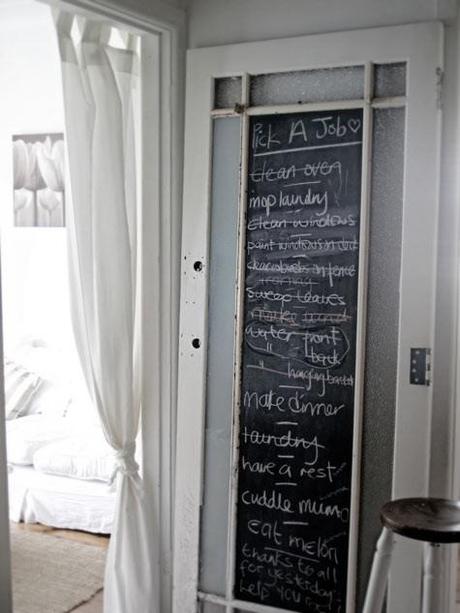 Pick A Job ♡
clean oven
mop laundry
clean windows
paint windows in
in fence
ironing
sweep leaves
water front
" back
" hanging baskets
make dinner
laundry
have a rest
cuddle mum
eat melon
thanks to all
for yesterday
help you